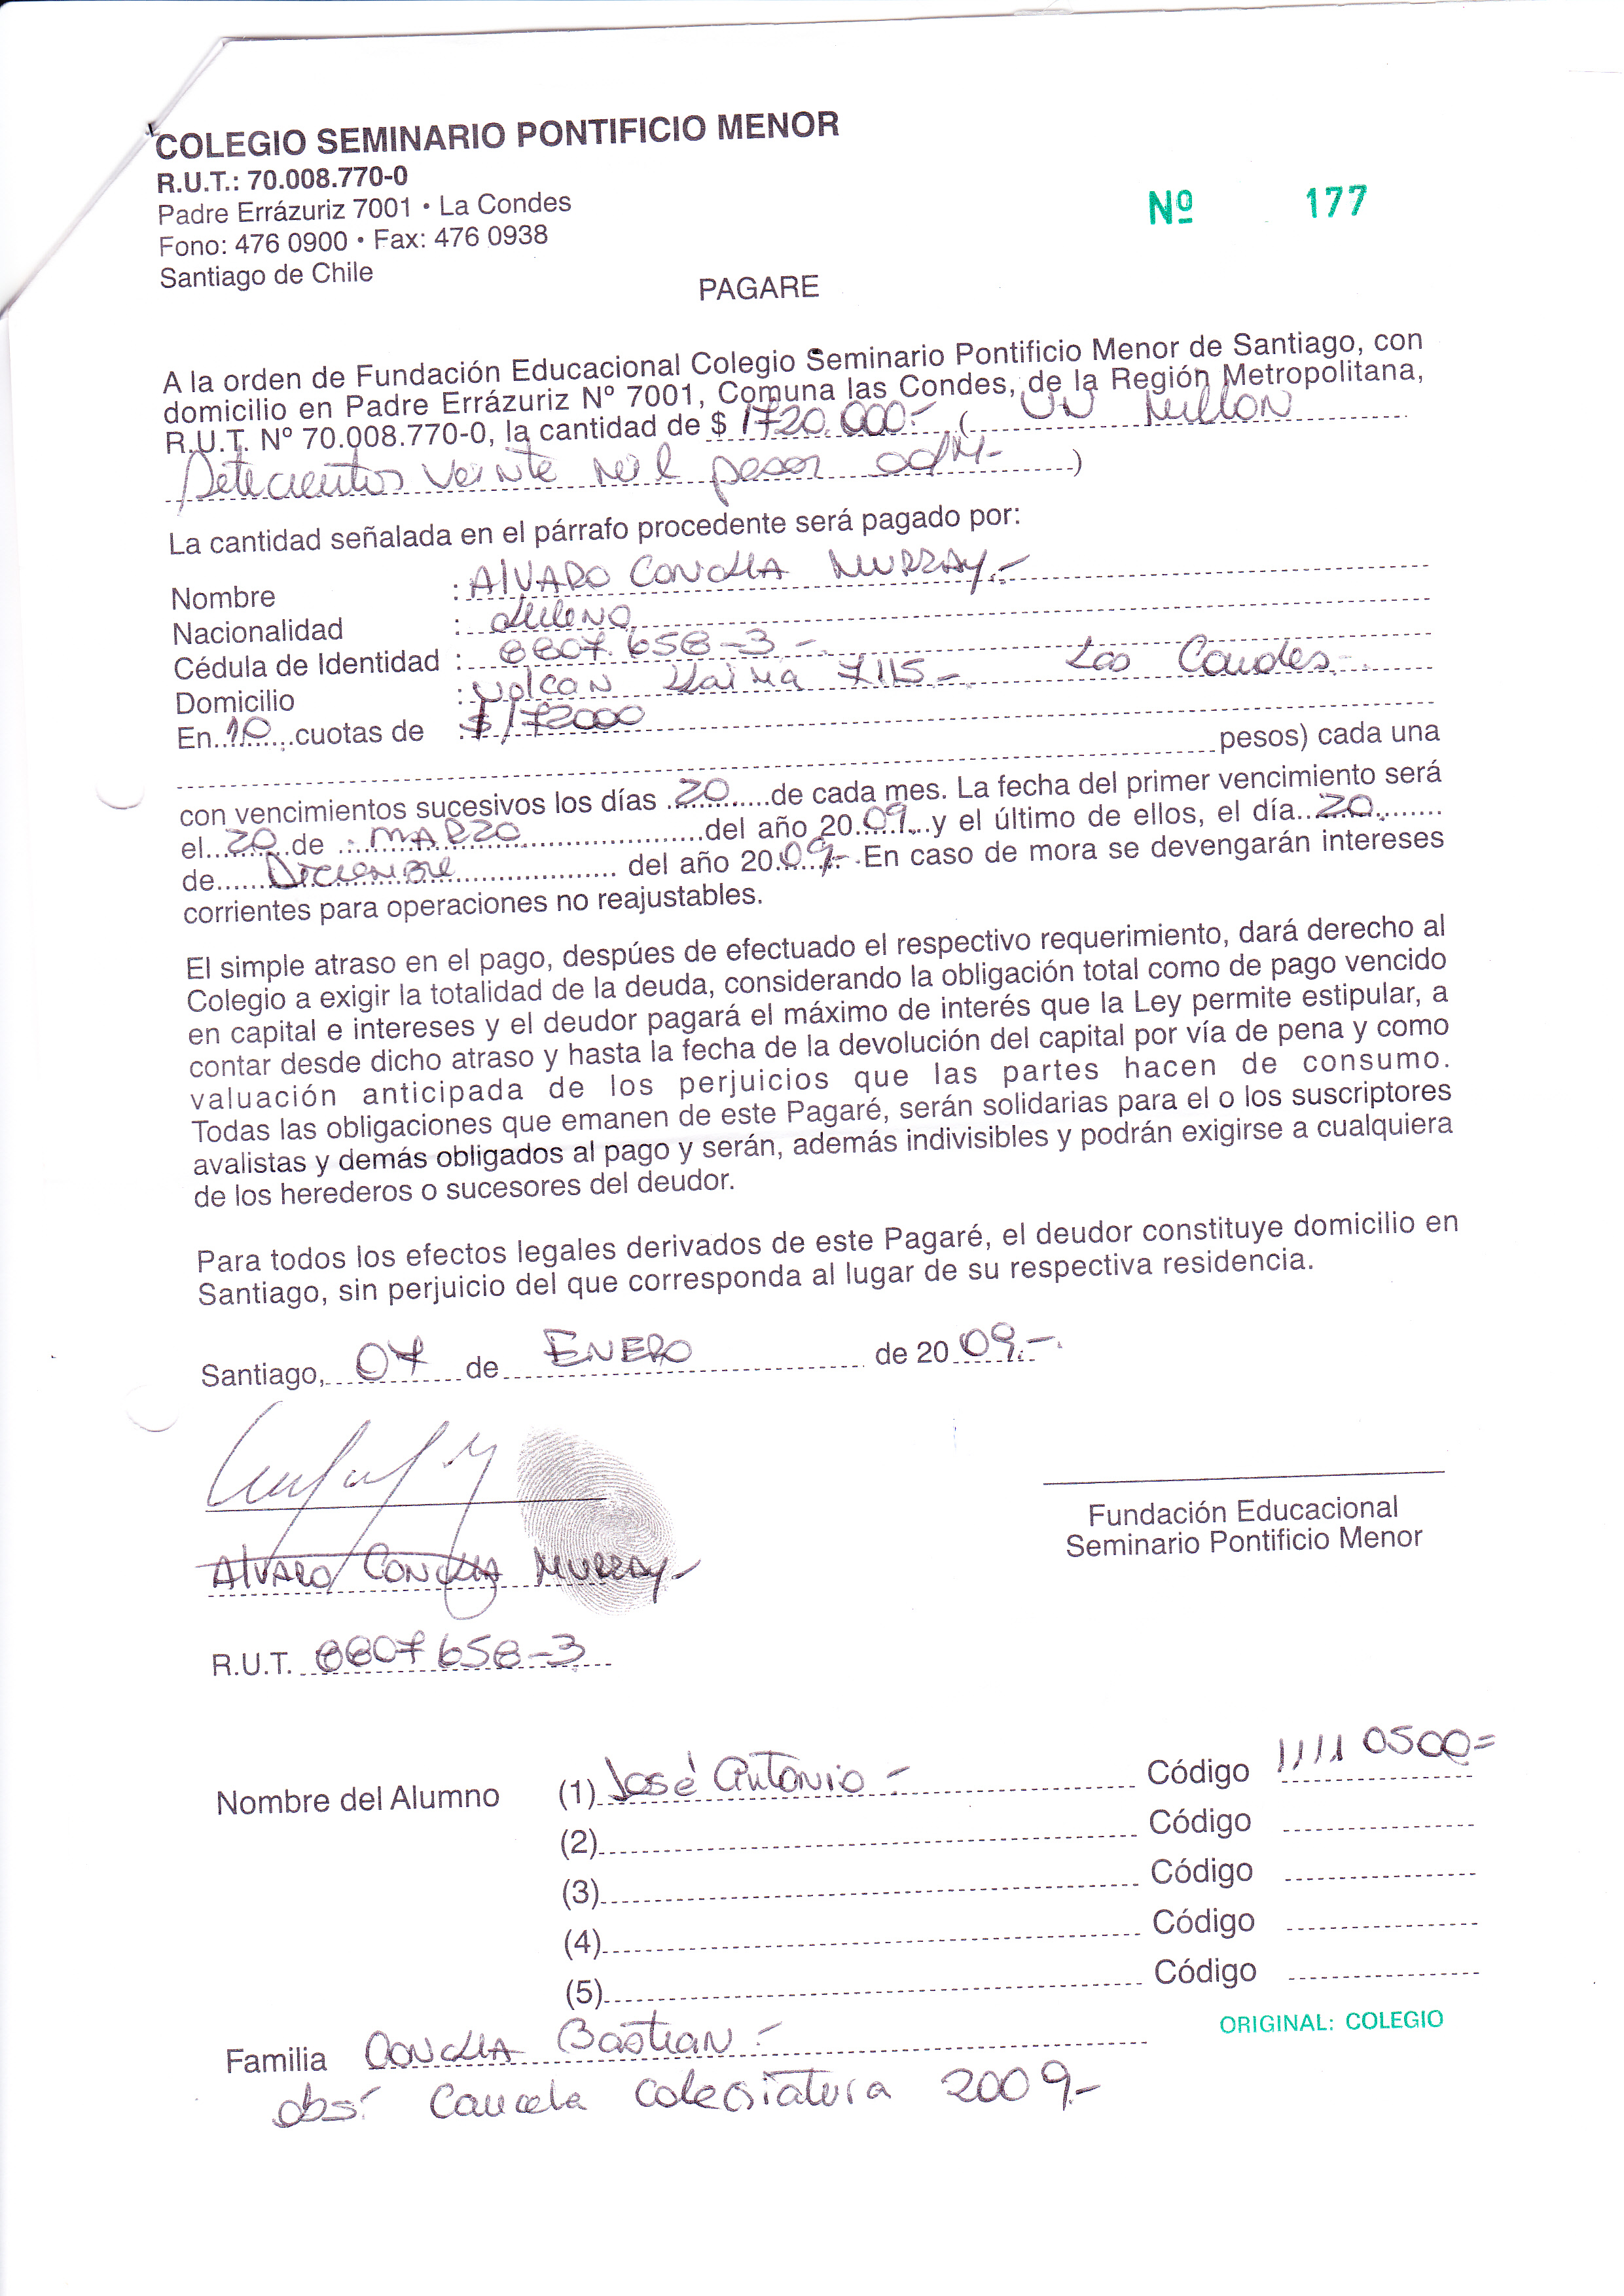 COLEGIO SEMINARIO PONTIFICIO MENOR
R.U.T.: 70.008.770-0
Padre Errázuriz 7001 • La Condes
Fono: 476 0900 • Fax: 476 0938
Santiago de Chile
Nº 177
PAGARE
A la orden de Fundación Educacional Colegio Seminario Pontificio Menor de Santiago, con
domicilio en Padre Errázuriz Nº 7001, Comuna las Condes, de la Región Metropolitana,
R.U.T. Nº 70.008.770-0, la cantidad de $ 1720.000.- ( UN Millon
Setecientos Veinte Mil pesos )
La cantidad señalada en el párrafo procedente será pagado por:
Nombre : Alvaro Concha Murray.-
Nacionalidad : chileno
Cédula de Identidad : 8807.658-3.-
Domicilio : Volcan Llaima 7115.- Las Condes.-
En 10 cuotas de : $172000
pesos) cada una
con vencimientos sucesivos los días 20 de cada mes. La fecha del primer vencimiento será
el 20 de MARZO del año 2009 y el último de ellos, el día 20
de Diciembre del año 2009.- En caso de mora se devengarán intereses
corrientes para operaciones no reajustables.
El simple atraso en el pago, despúes de efectuado el respectivo requerimiento, dará derecho al
Colegio a exigir la totalidad de la deuda, considerando la obligación total como de pago vencido
en capital e intereses y el deudor pagará el máximo de interés que la Ley permite estipular, a
contar desde dicho atraso y hasta la fecha de la devolución del capital por vía de pena y como
valuación anticipada de los perjuicios que las partes hacen de consumo.
Todas las obligaciones que emanen de este Pagaré, serán solidarias para el o los suscriptores
avalistas y demás obligados al pago y serán, además indivisibles y podrán exigirse a cualquiera
de los herederos o sucesores del deudor.
Para todos los efectos legales derivados de este Pagaré, el deudor constituye domicilio en
Santiago, sin perjuicio del que corresponda al lugar de su respectiva residencia.
Santiago, 07 de ENERO de 2009.-
Fundación Educacional
Seminario Pontificio Menor
Alvaro Concha Murray.-
R.U.T. 8807658-3
Nombre del Alumno (1) José Antonio.- Código 11110500=
(2) Código
(3) Código
(4) Código
(5) Código
ORIGINAL: COLEGIO
Familia Concha Bastian.-
obs: Cancela Colegiatura 2009.-